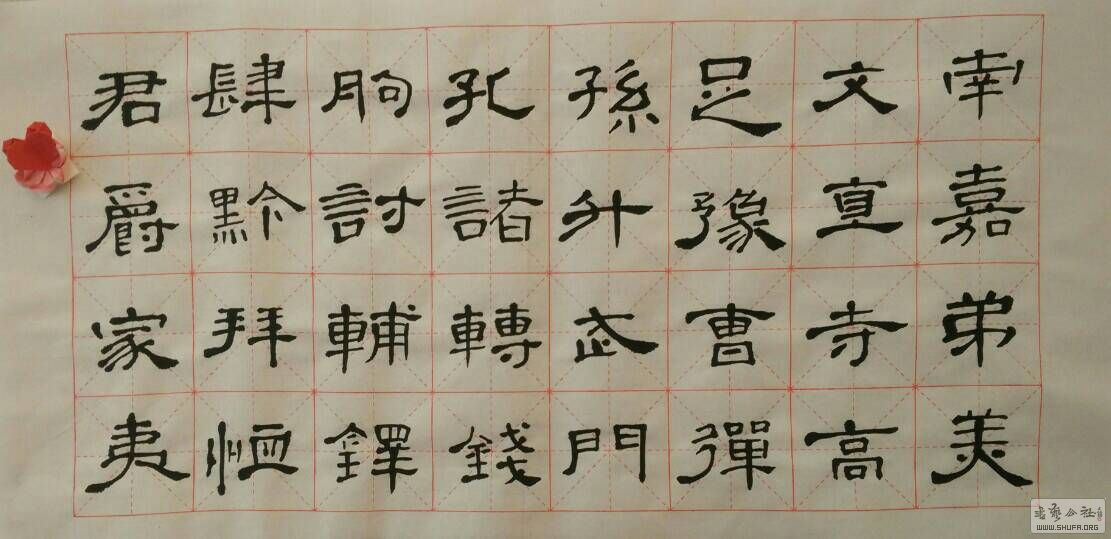 南嘉弟美
文宣寺高
足豫曹彈
孫升武門
孔諸轉錢
朐討輔鐸
肆黔拜恤
君爵家夷
书艺公社
WWW.SHUFA.ORG